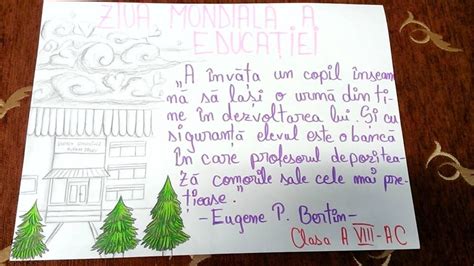 ZIUA MONDIALĂ A
EDUCAȚIEI
„A învăța un copil înseam
nă să lași o urmă din ti-
ne în dezvoltarea lui. Și cu
siguranță elevul este o bancă
în care profesorul depozitea-
ză comorile sale cele mai pre-
țioase."
-Eugene P. Bertin-
Clasa A VIII-A C